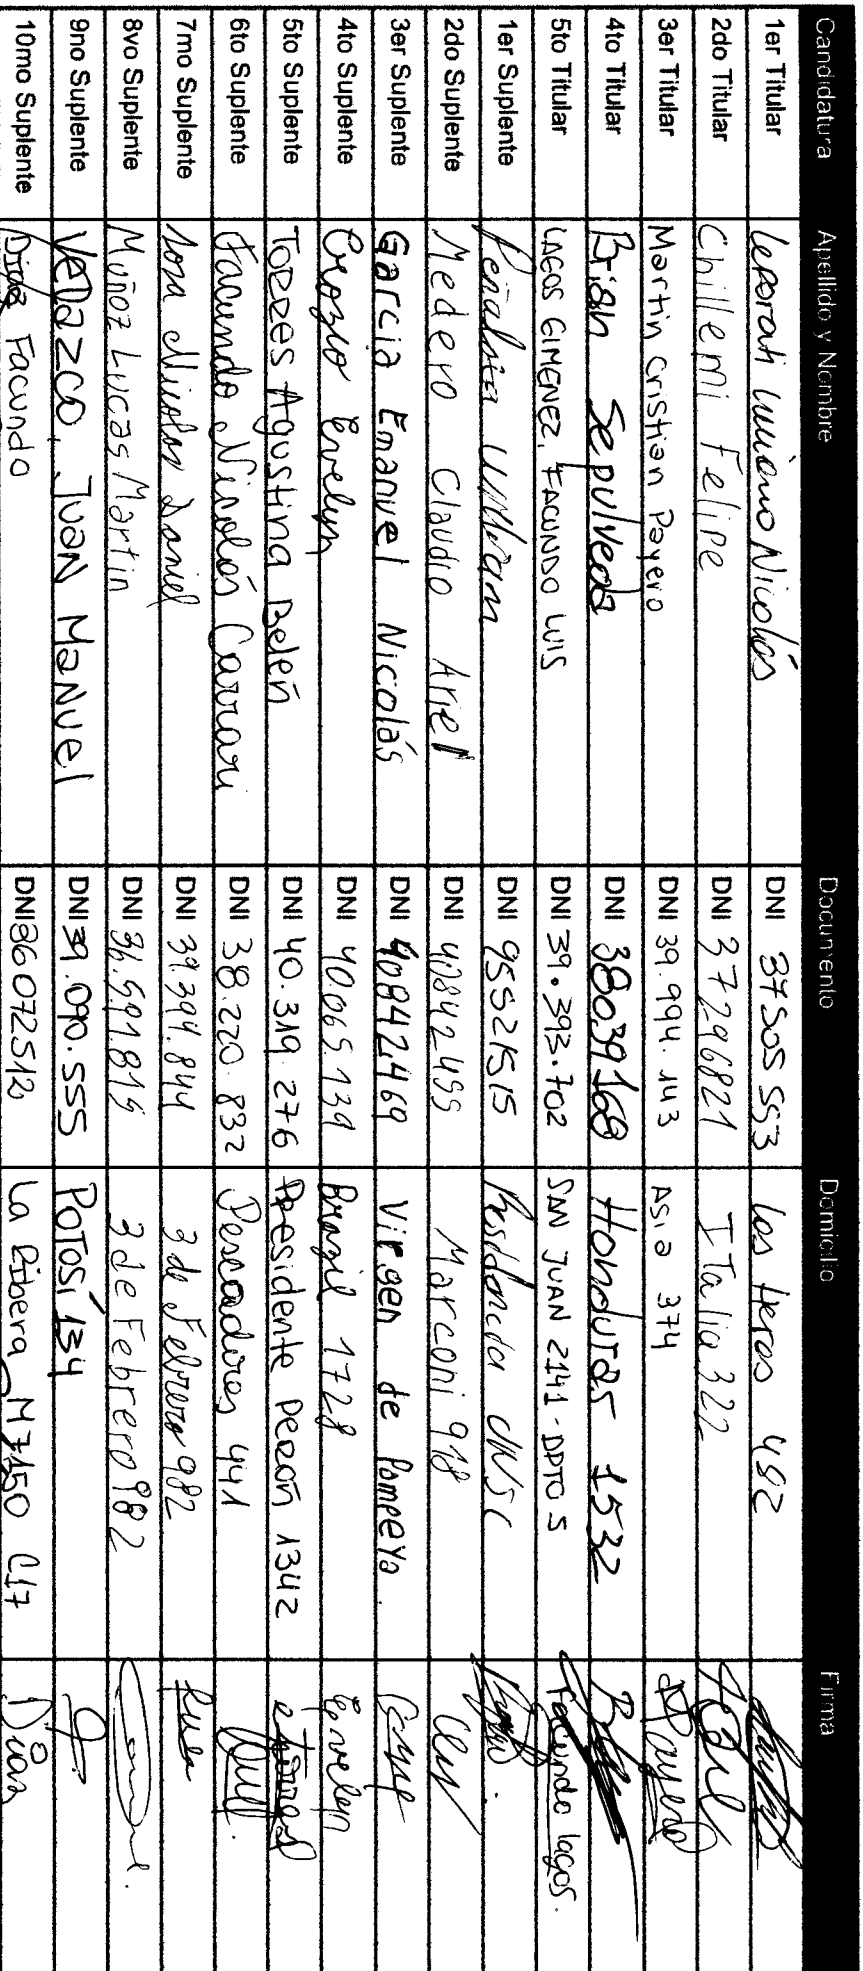 Candidatura Apellido y Nombre Documento Domicilio Firma
1er Titular Leporati Luciano Nicolás DNI 37505553 Las Heras 492
2do Titular Chillemi Felipe DNI 37296821 Italia 322
3er Titular Martin Cristian Payero DNI 39.994.143 Asia 374 Payero
4to Titular Brian Sepulveda DNI 38039168 Honduras 1532
5to Titular LAGOS GIMENEZ, FACUNDO LUIS DNI 39.393.702 SAN JUAN 2141 - DPTO 5 Facundo lagos.
1er Suplente Peñaloza William DNI 95521515 Residencia UNSC
2do Suplente Medero Claudio Ariel DNI 40842495 Marconi 918
3er Suplente Garcia Emanuel Nicolás DNI 40842469 Virgen de Pompeya.
4to Suplente Orozio Evelyn DNI 40.065.139 Brazil 1728 Evelyn
5to Suplente TORRES Agustina Belén DNI 40.319.276 Presidente Perón 1342 Torres
6to Suplente Facundo Nicolás Carrari DNI 38.220.832 Pescadores 441
7mo Suplente Sosa Nicolas Daniel DNI 39.394.844 3 de Febrero 982
8vo Suplente Muñoz Lucas Martin DNI 36.591.815 3 de Febrero 982
9no Suplente Velazco, Juan Manuel DNI 39.090.555 POTOSÍ 134
10mo Suplente Diaz Facundo DNI 36072512 La Ribera M7150 C17 Diaz